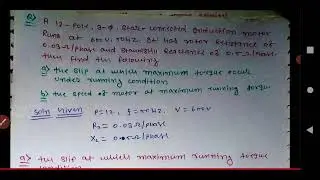 Q) A 12-Pole, 3-Φ, Star-connected Induction motor
Runs at 600V, 50Hz. It has rotor resistance of
0.03Ω/phase and Standstill Reactance of 0.5Ω/phase
then find the following
a) the slip at which maximum torque occurs
under running condition
b) the speed of motor at maximum running torque
Soln Given P=12, f=50Hz, V=600V
R₂ = 0.03Ω/phase
X₂ = 0.5Ω/phase
a) the slip at which maximum running torque
condition